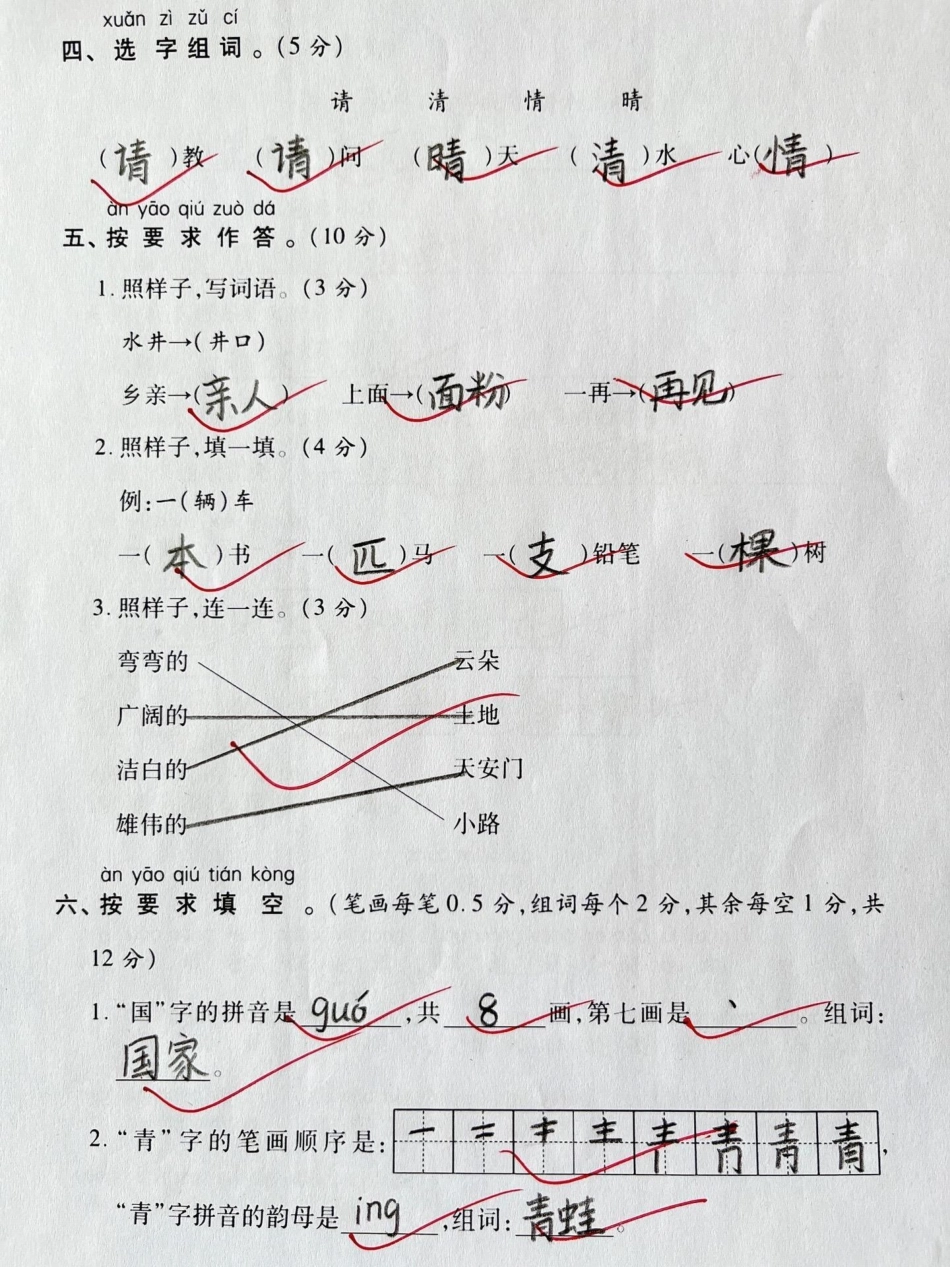 xuǎn zì zǔ cí
四、选字组词。(5分)
请 清 情 晴
(请)教 (请)问 (晴)天 (清)水 心(情)
àn yāo qiú zuò dá
五、按要求作答。(10分)
1.照样子,写词语。(3分)
水井→(井口)
乡亲→(亲人) 上面→(面粉) 一再→(再见)
2.照样子,填一填。(4分)
例:一(辆)车
一(本)书 一(匹)马 一(支)铅笔 一(棵)树
3.照样子,连一连。(3分)
弯弯的 云朵
广阔的 土地
洁白的 天安门
雄伟的 小路
àn yāo qiú tián kòng
六、按要求填空。(笔画每笔0.5分,组词每个2分,其余每空1分,共
12分)
1.“国”字的拼音是guó,共8画,第七画是丶。组词:
国家。
2.“青”字的笔画顺序是:
“青”字拼音的韵母是ing,组词:青蛙。